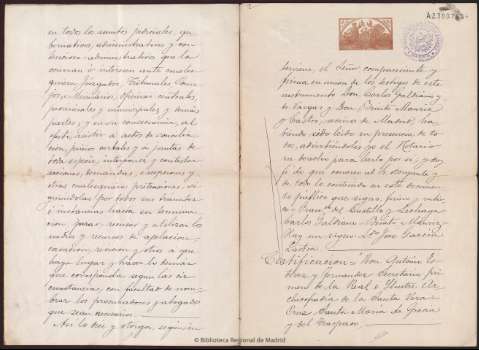 en todos los asuntos judiciales, gu-
bernativos, administrativos y con-
tencioso-administrativos que le
ocurran é interesen ante cuales-
quiera Juzgados, Tribunales
oficinas
provinciales y municipales y demas
partes; y en su consecuencia, al
efecto, asistir a actos de concilia-
cion, juicios verbales y
toda especie, interponer y contestar
acciones, demandas, excepciones y
otras cualesquiera pretensiones, si-
guiendolas por todos sus tramites
é instancias hasta su termina-
cion, jurar, recusar y utilizar los
autos y recursos de apelacion,
casacion, revision y otros a que
haya lugar y hacer lo demas
que corresponda segun las cir-
cunstancias, con facultad de nom-
brar los procuradores y abogados
que sean necesarios.
Asi lo dice y otorga, segun in-
A2
terviene, el Señor compareciente y
firma en union de los testigos de este
instrumento Don Carlos
de Vargas y Don Benito
y Castro, vecinos de Madrid, ha-
biendo sido leido en presencia de to-
dos, advirtiendoles yo el Notario
su derecho para leerlo por si; y doy
fé de que conozco al otorgante y
de todo lo contenido en este docum-
to publico que signo, firmo y rubri-
co = Franco del Castillo y Lechaga
Carlos = Benito
Hay un signo = Ldo. José Garcia
Lastra
Certificacion = Don Antonio
y Fernandez Secretario pri-
mero de la Real é Ilustre Ar-
chicofradia de la Santa Vera
Cruz Santa Maria de Gracia
y del Traspaso
© Biblioteca Regional de Madrid